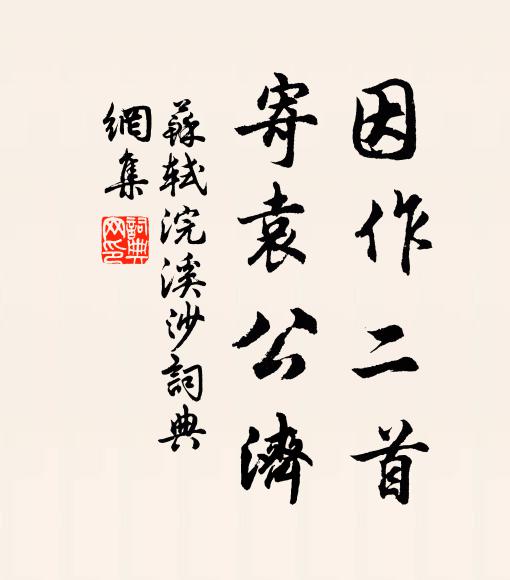 因作二首
寄袁公濟
蘇軾浣溪沙詞典
網集
詞典
网印